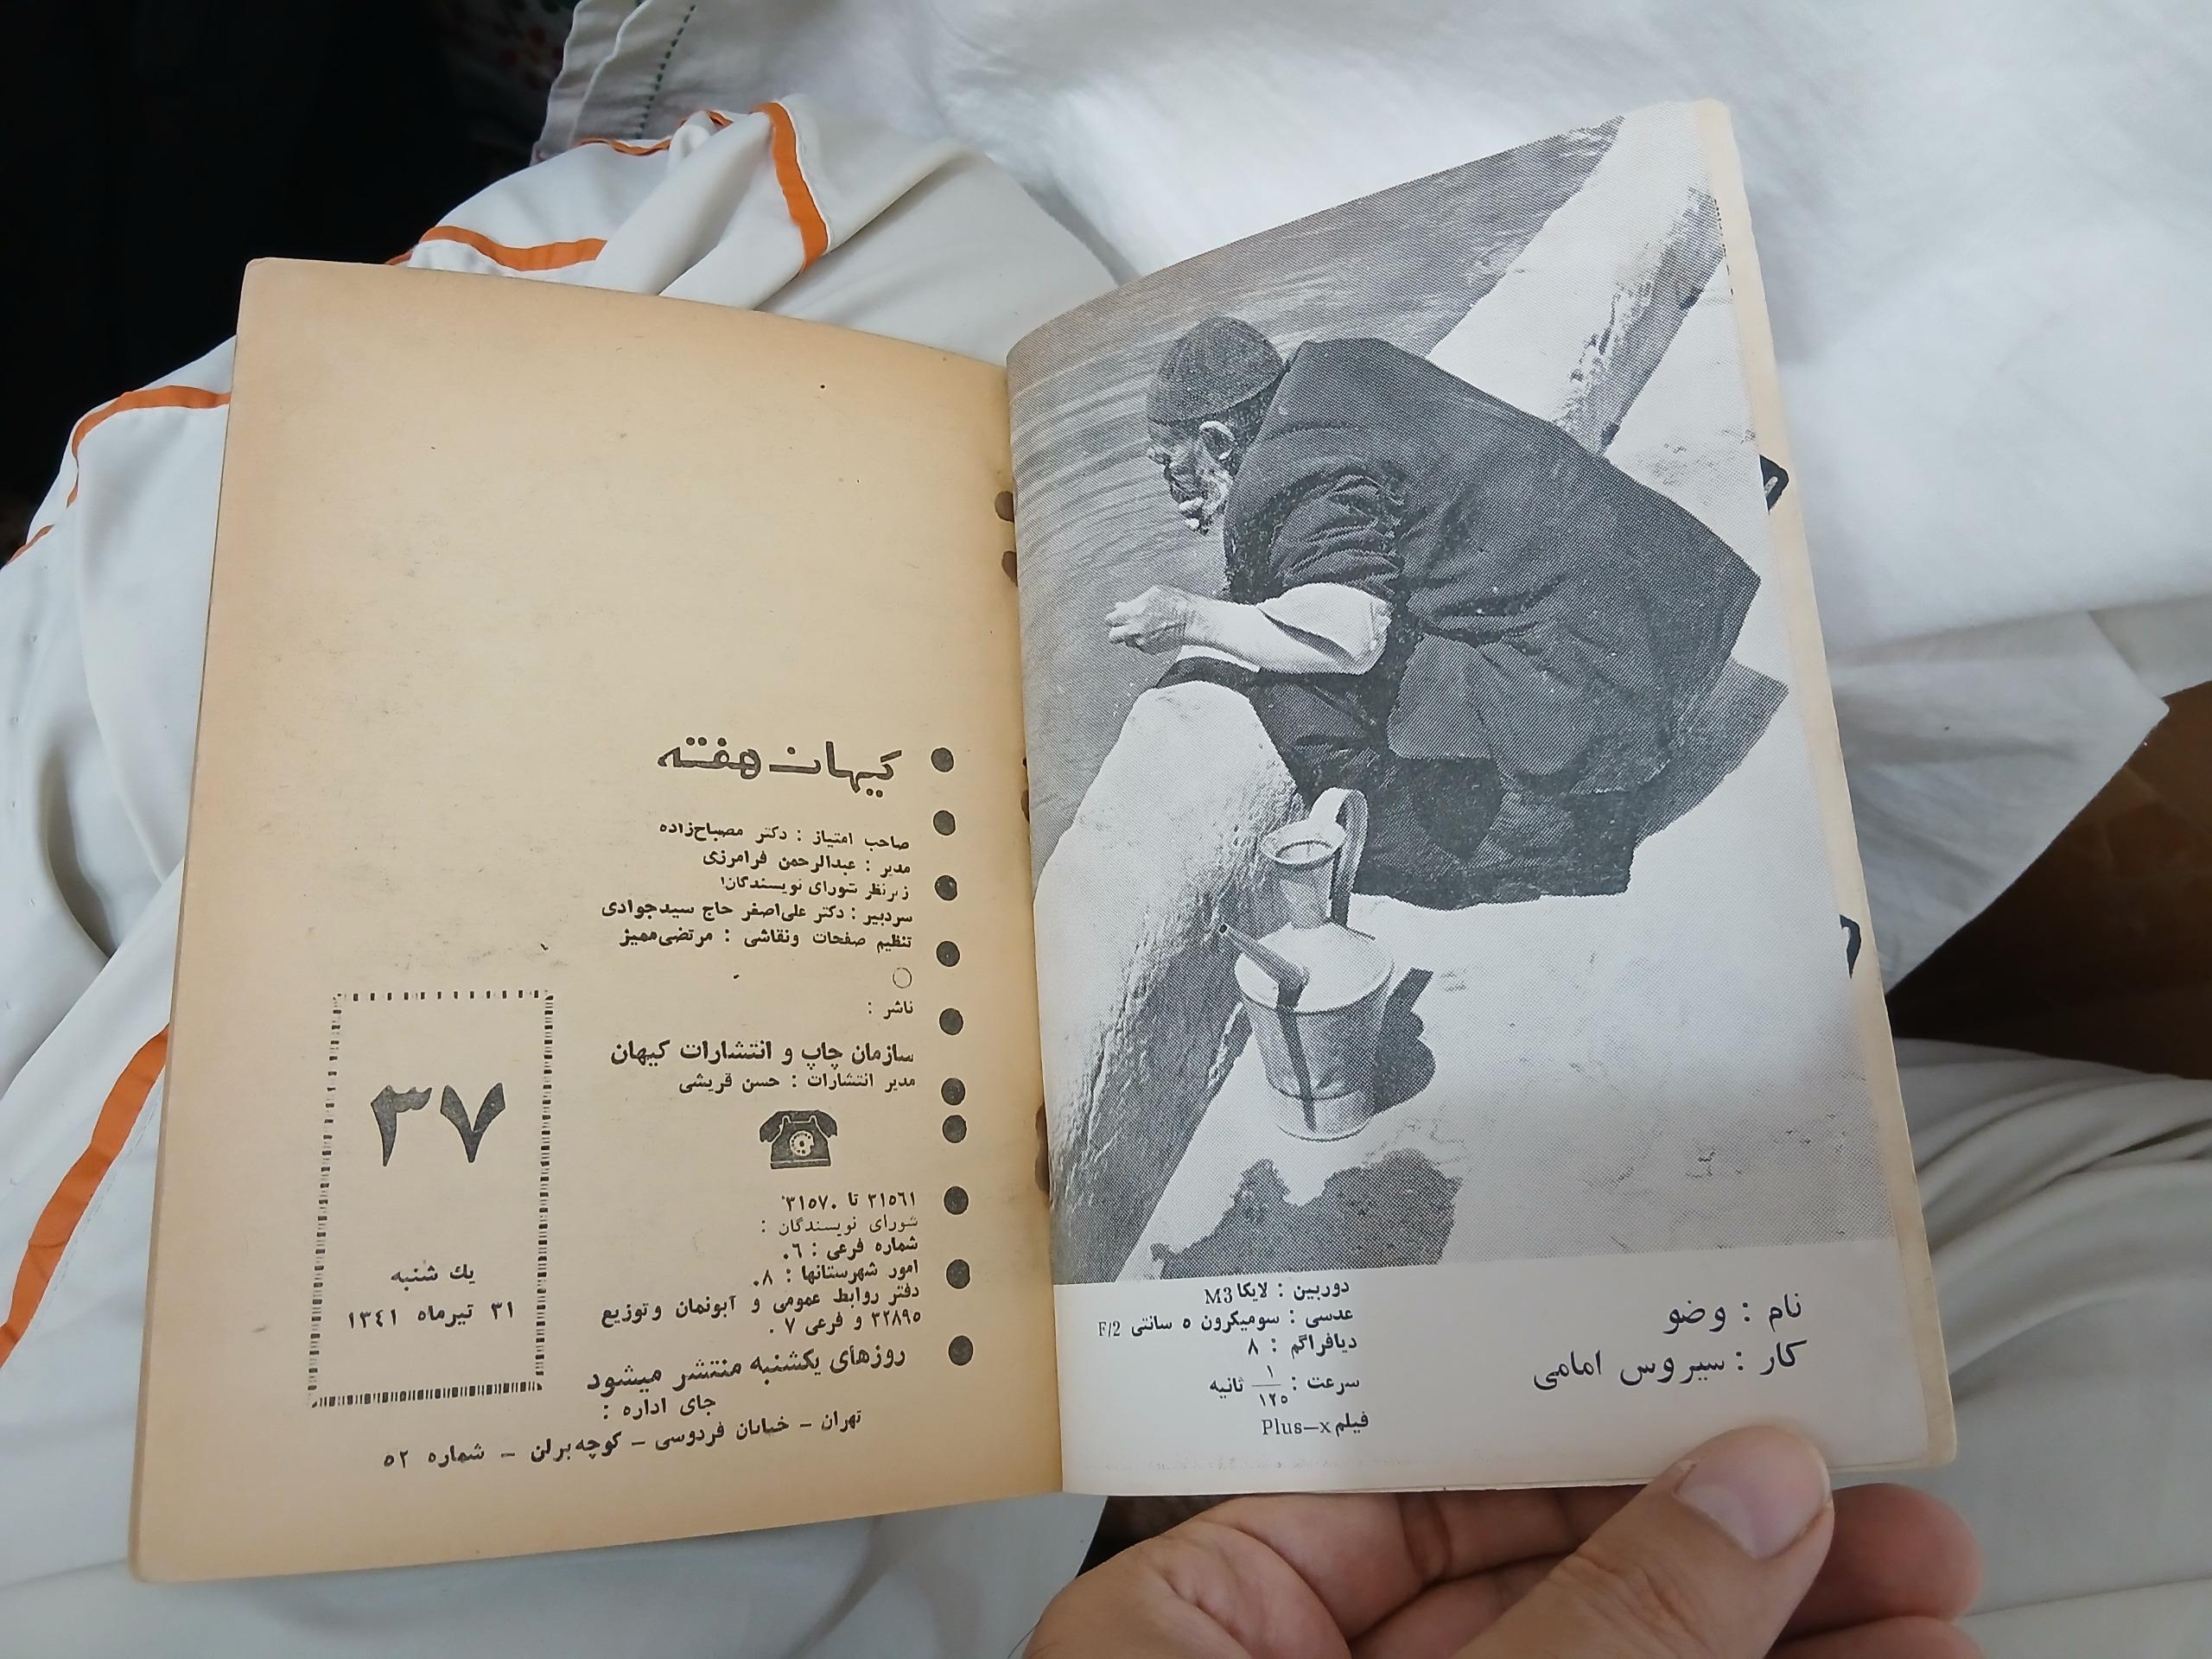 نام : وضو
کار : سیروس امامی
دوربین : لایکا M3
عدسی : سومیکرون ٥ سانتی F/2
دیافراگم : ٨
سرعت : ١/١٢٥ ثانیه
فیلم Plus-x
کیهان هفته
صاحب امتیاز : دکتر مصباح‌زاده
مدیر : عبدالرحمن فرامرزی
زیرنظر شورای نویسندگان
سردبیر : دکتر علی‌اصغر حاج سیدجوادی
تنظیم صفحات ونقاشی : مرتضی‌ممیز
ناشر :
سازمان چاپ و انتشارات کیهان
مدیر انتشارات : حسن قریشی
٣١٥٦١ تا ٣١٥٧٠
شورای نویسندگان :
شماره فرعی : ٦٠
امور شهرستانها : ٨٠
دفتر روابط عمومی و آبونمان و توزیع
٣٢٨٩٥ و فرعی ٧٠
روزهای یکشنبه منتشر میشود
جای اداره :
تهران – خیابان فردوسی – کوچه برلن – شماره ٥٢
٣٧
یك شنبه
٣١ تیرماه ١٣٤١